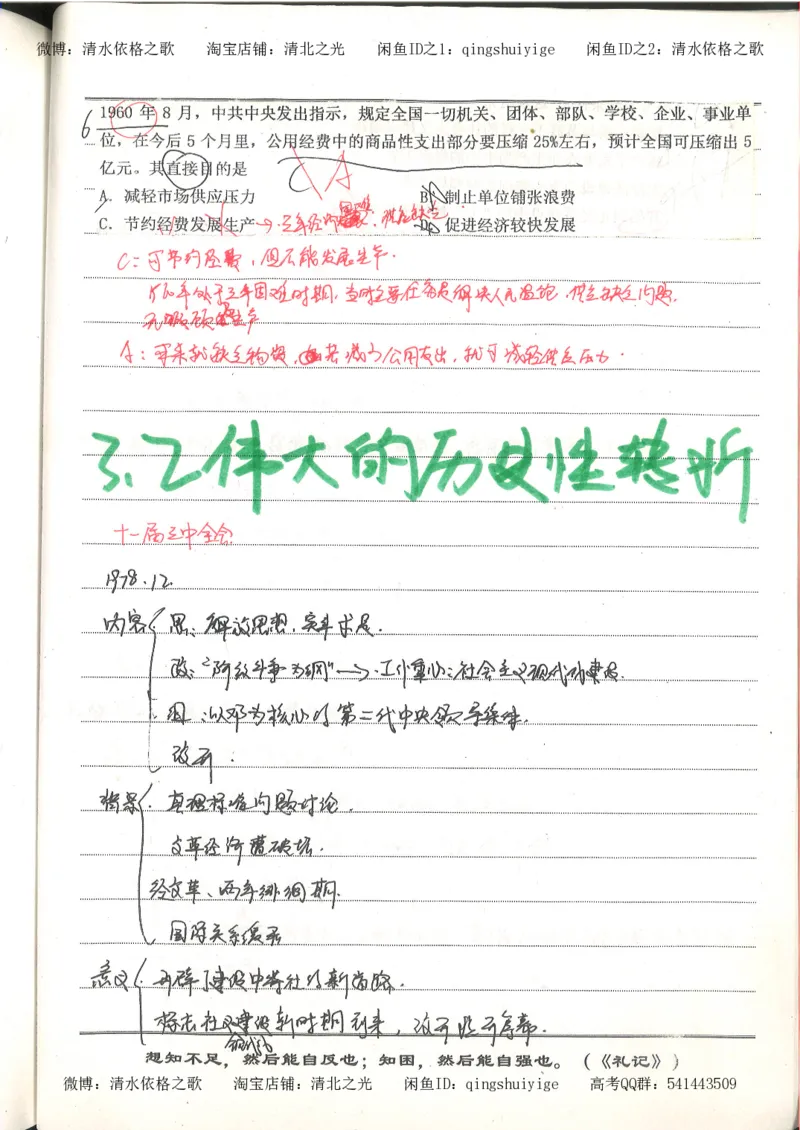 微博：清水依格之歌 淘宝店铺：清北之光 闲鱼ID之1：qingshuiyige 闲鱼ID之2：清水依格之歌
6 1960 年 8 月，中共中央发出指示，规定全国一切机关、团体、部队、学校、企业、事业单
位，在今后 5 个月里，公用经费中的商品性支出部分要压缩 25%左右，预计全国可压缩出 5
亿元。其直接目的是
C A
A．减轻市场供应压力 B．制止单位铺张浪费
C．节约经费发展生产 D．促进经济较快发展
→三年经济困难，供应缺乏
C：可节约经费，但不能发展生产．
1960年处于三年困难时期，当时主要任务是解决人民温饱、供应缺乏问题．
无暇顾及生产
A：本来就缺乏物资，若减少公用支出，就可减轻供应压力．
3.2伟大的历史性转折
十一届三中全会
1978.12.
内容 思：解放思想，实事求是．
政："阶级斗争为纲"→工作重心：社会主义现代化建设．
组：以邓为核心的第二代中央领导集体．
改开．
背景 真理标准问题讨论．
文革经济遭破坏．
经文革、两年徘徊期．
国际关系缓和
意义 开辟了建设中特社的新道路．
标志社义建设新时期到来，改开拉开序幕．
现代化
想知不足，然后能自反也；知困，然后能自强也。（《礼记》）
微博：清水依格之歌 淘宝店铺：清北之光 闲鱼ID：qingshuiyige 高考QQ群：541443509